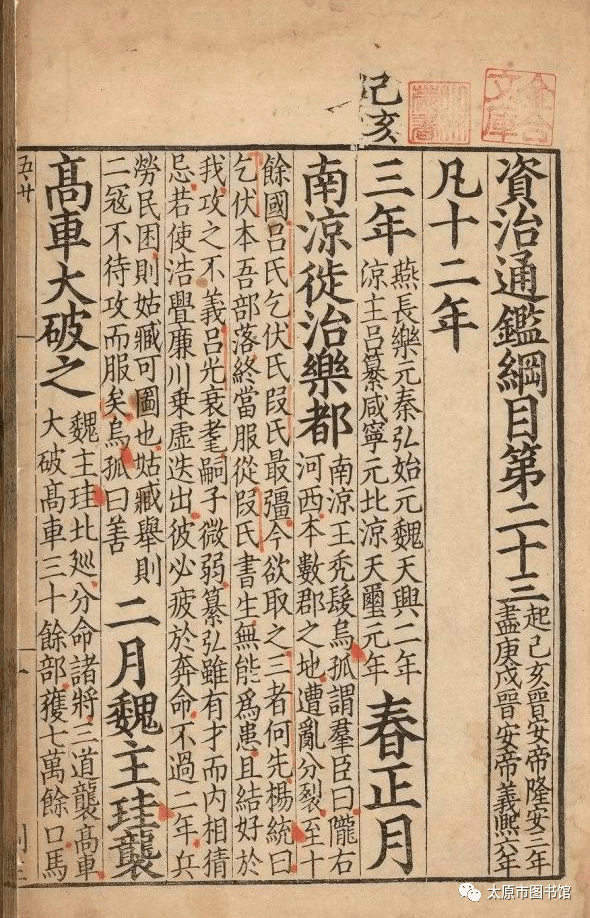 己亥
文庫
資治通鑑綱目第二十三
起己亥晉安帝隆安三年
盡庚戌晉安帝義熙六年
凡十二年
三年
燕長樂元秦弘始元魏天興二年
涼主呂纂咸寧元北涼天璽元年
春正月
南涼徙治樂都
南涼王禿髮烏孤謂羣臣曰隴右
河西本數郡之地遭亂分裂至十
餘國呂氏乞伏氏段氏最彊今欲取之三者何先楊統曰
乞伏本吾部落終當服從段氏書生無能爲患且結好於
我攻之不義呂光衰耄嗣子微弱纂弘雖有才而内相猜
忌若使浩亹廉川乗虛迭出彼必疲於奔命不過二年兵
勞民困則姑臧可圖也姑臧舉則
二冦不待攻而服矣烏孤曰善
二月魏主珪襲
髙車大破之
魏主珪北廵分命諸將三道襲髙車
大破髙車三十餘部獲七萬餘口馬
五廿
太原市图书馆